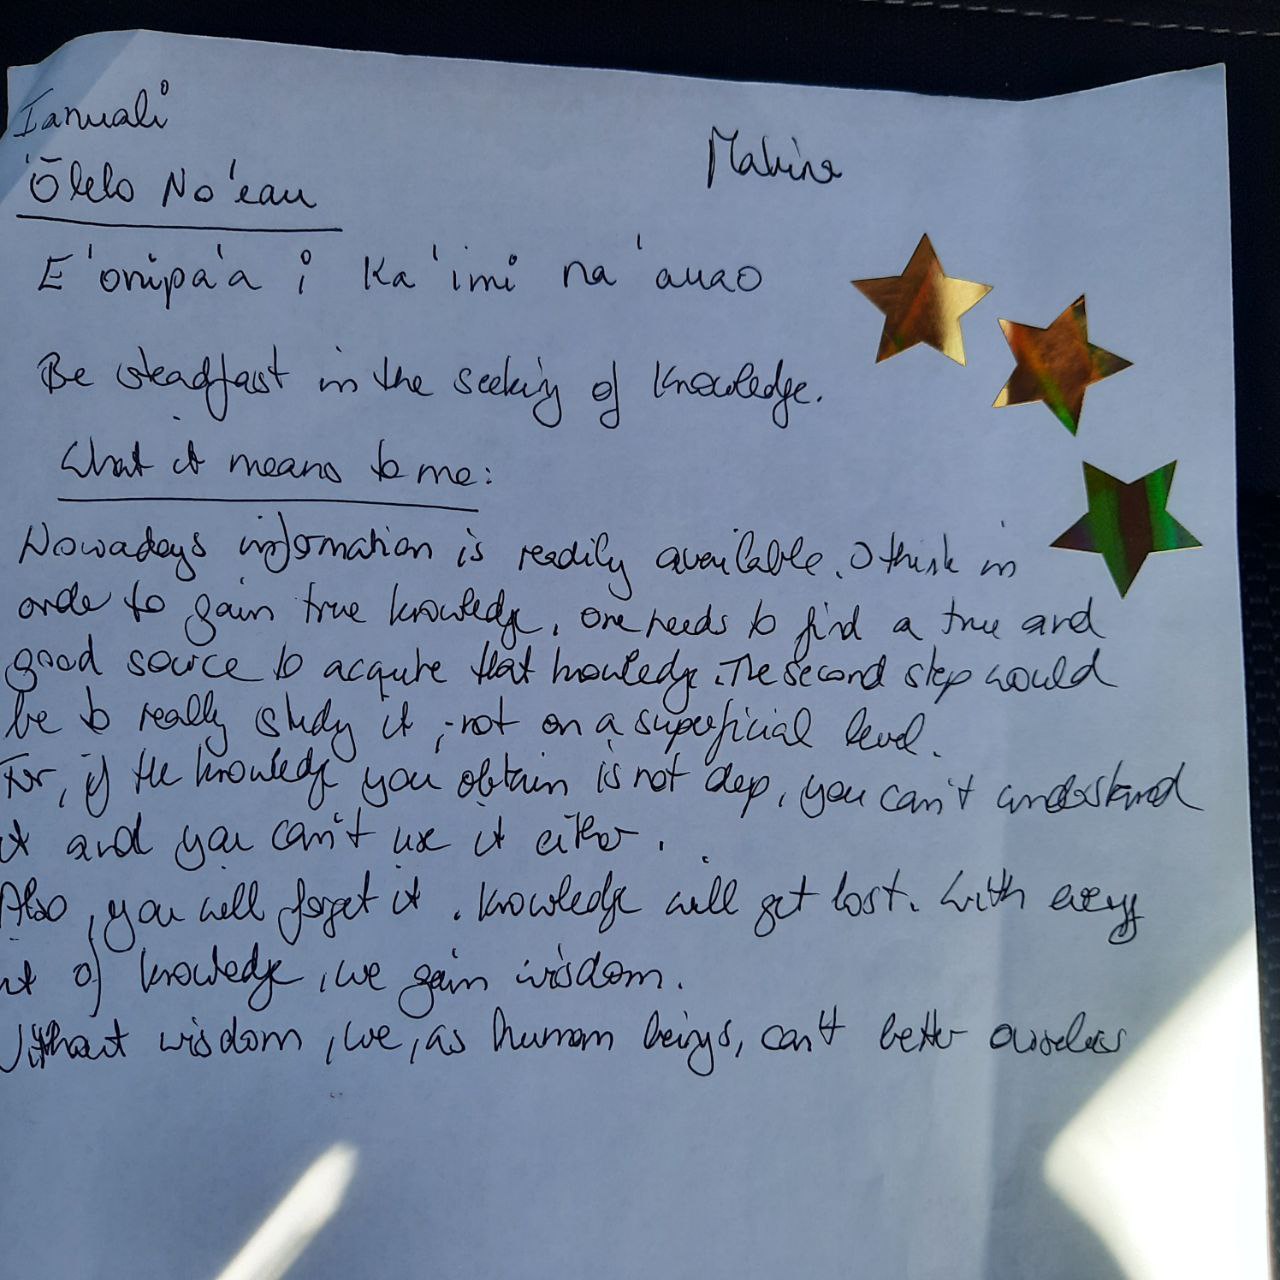 Ianuali
Mahine
'Ōlelo No'eau
E 'onipa'a i Ka 'imi na 'auao
Be steadfast in the seeking of knowledge.
What it means to me:
Nowadays information is readily available. I think in
order to gain true knowledge, one needs to find a true and
good source to acquire that knowledge. The second step would
be to really study it, not on a superficial level.
For, if the knowledge you obtain is not deep, you can't understand
it and you can't use it either.
Also, you will forget it. Knowledge will get lost. With every
of knowledge, we gain wisdom.
Without wisdom, we, as human beings, can't better ourselves